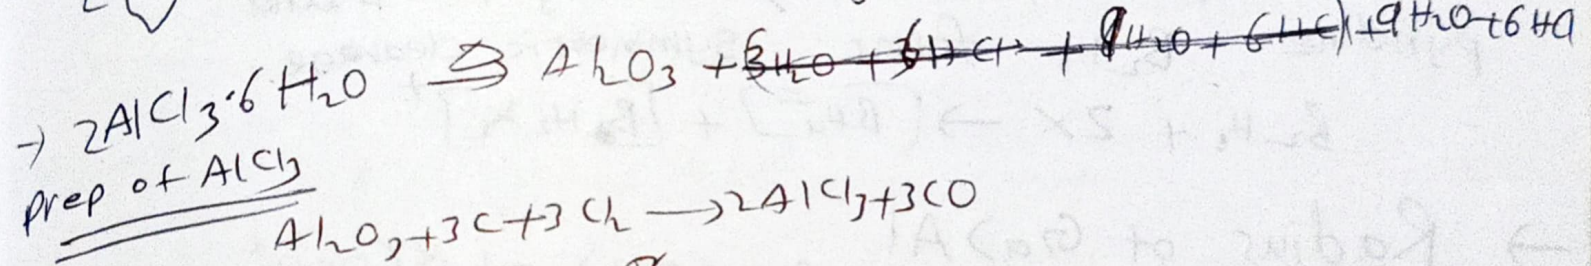 → 2AlCl3·6H2O ⟶Δ Al2O3 + 9H2O + 6HCl
prep of AlCl3
Al2O3 + 3C + 3Cl2 ⟶ 2AlCl3 + 3CO